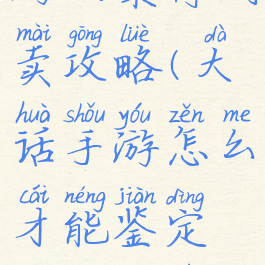 mài gōng lüè dà
卖攻略(大
huà shǒu yóu zěn me
话手游怎么
cái néng jiàn dìng
才能鉴定